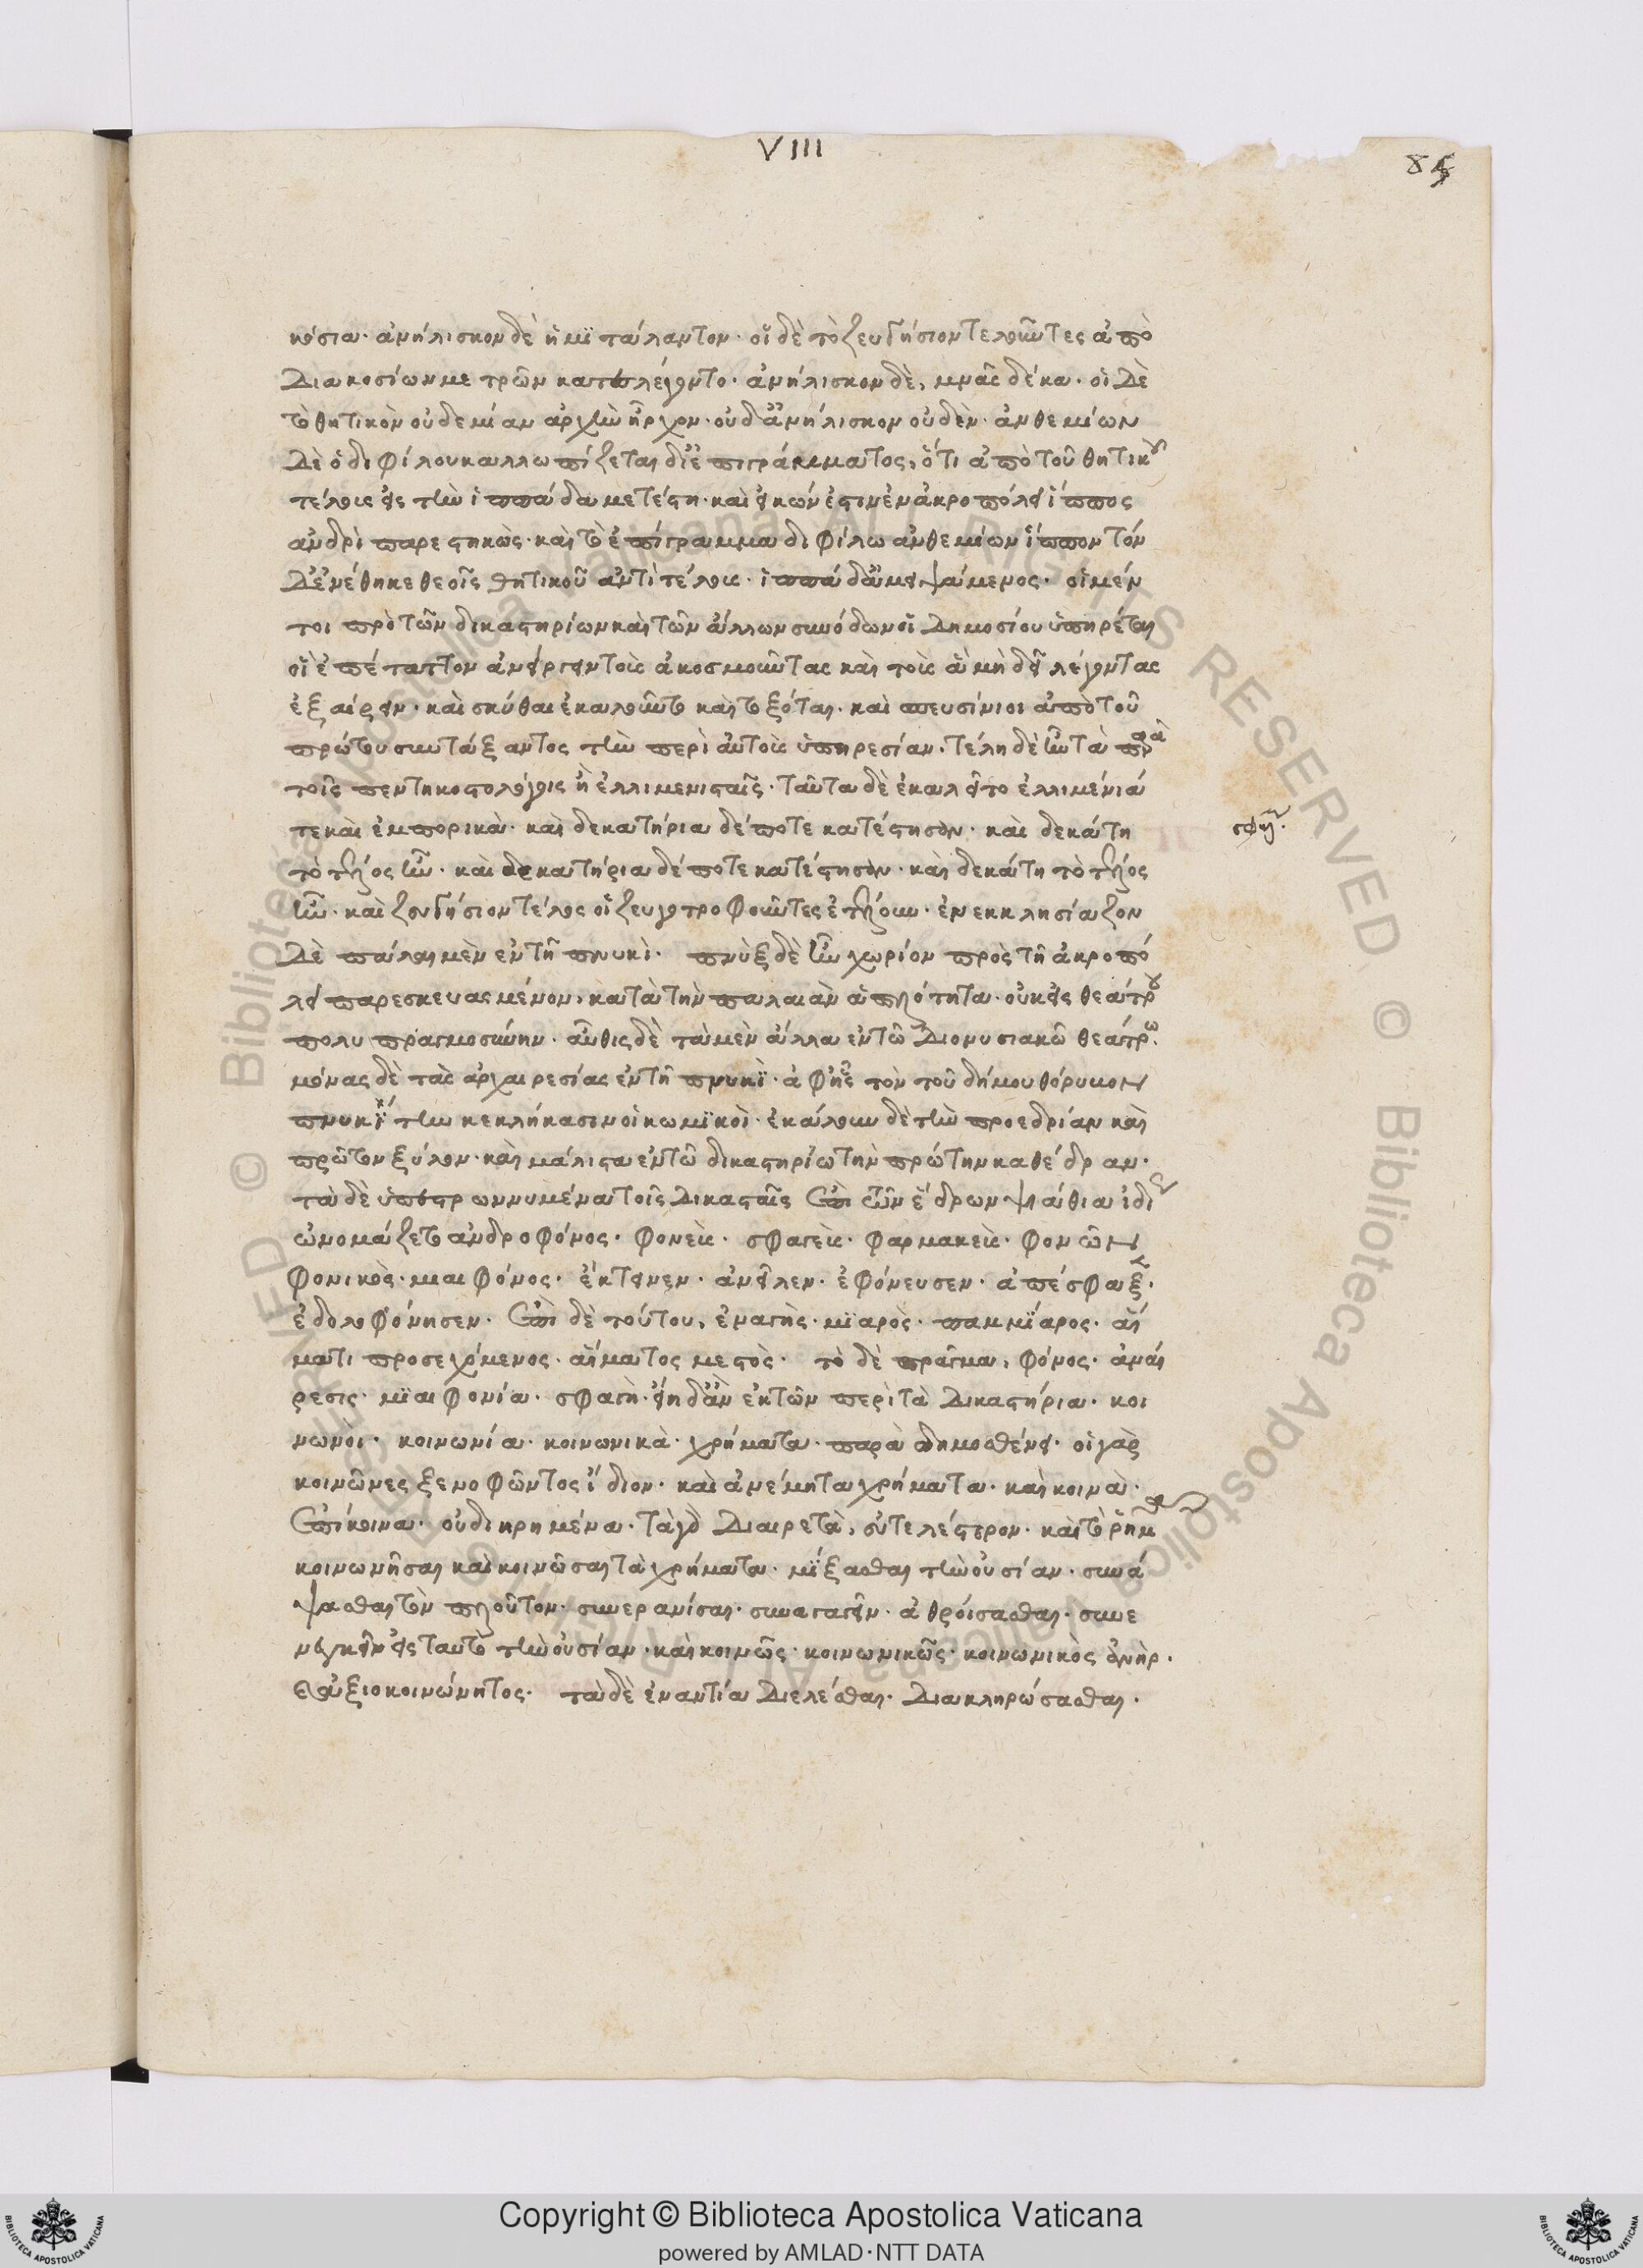 VIII
85
κόσια· ἀνήλισκον δὲ ἡμϊτάλαντον· οἱ δὲ τὸ ζευγήσιον τελοῦντες ἀπὸ
διακοσίων μετρῶν κατελέγοντο· ἀνήλισκον δὲ, μνᾶς δέκα· οἱ δὲ
τὸ θητικὸν οὐδεμίαν ἀρχὴν ἦρχον· οὐδ' ἀνήλισκον οὐδὲν· ἀνθεμίων
δὲ ὁ διφίλου καλλωπίζεται δι' ἐπιγράμματος, ὅτι ἀπὸ τοῦ θητικοῦ
τέλους εἰς τὴν ἱππάδα μετέστη· καὶ εἰκών ἐστιν ἐν ἀκροπόλει ἵππος
ἀνδρὶ παρεστηκὼς· καὶ τὸ ἐπίγραμμα διφίλω ἀνθεμίων ἵππον τόν
δ' ἀνέθηκε θεοῖς θητικοῦ ἀντὶ τέλους· ἱππάδ' ἀμειψάμενος· οἱ μέν
τοι πρὸ τῶν δικαστηρίων καὶ τῶν ἄλλων συνόδων οἱ δημοσίου ὑπηρέται
οἷ ἐπέταττον ἀνείργειν τοὺς ἀκοσμοῦντας καὶ τοὺς ἃ μὴ δεῖ λέγοντας
ἐξαίρειν· καὶ σκύθαι ἐκαλοῦντο καὶ τοξόται· καὶ πευσίνιοι ἀπὸ τοῦ
πρώτου συντάξαντος τὴν περὶ αὐτοὺς ὑπηρεσίαν. τέλη δὲ ἦν τὰ παρὰ
τοῖς πεντηκοστολόγοις ἢ ἐλλιμενισταῖς· ταῦτα δὲ ἐκαλεῖτο ἐλλιμένιά
τε καὶ ἐμπορικὰ· καὶ δεκατήρια δέ ποτε κατέστησαν· καὶ δεκάτη
τὸ τέλος ἦν· καὶ δεκατήρια δέ ποτε κατέστησαν· καὶ δεκάτη τὸ τέλος
ἦν· καὶ ζευγήσιον τέλος οἱ ζευγοτροφοῦντες ἐτέλουν· ἐνεκκλησίαζον
δὲ πάλαι μὲν ἐν τῆ πνυκὶ· πνὺξ δὲ ἦν χωρίον πρὸς τῆ ἀκροπό
λει παρεσκευασμένον, κατὰ τὴν παλαιὰν ἁπλότητα· οὐκ εἰς θεάτρου
πολυπραγμοσύνην· αὖθις δὲ τὰ μὲν ἄλλα ἐν τῶ διονυσιακῶ θεάτρω.
μόνας δὲ τὰς ἀρχαιρεσίας ἐν τῆ πνυκϊ· ἀφ' ἧς τὸν τοῦ δήμου θόρυβον
πνυκΐτην κεκλήκασιν οἱ κωμϊκοὶ· ἐκάλουν δὲ τὴν προεδρίαν καὶ
πρῶτον ξύλον· καὶ μάλιστα ἐν τῶ δικαστηρίω τὴν πρώτην καθέδραν·
τὰ δὲ ὑποστρωννυμένα τοῖς δικασταῖς ἐπὶ τῶν ἕδρων ψιάθια ἰδίως
ὠνομάζετο ἀνδροφόνος· φονεὺς· σφαγεὺς· φαρμακεὺς· φονῶν
φονικὸς· μιαιφόνος· ἔκτεινεν· ἀνεῖλεν· ἐφόνευσεν· ἀπέσφαξεν·
ἐδολοφόνησεν· ἐπὶ δὲ τούτου, ἐναγὴς· μϊαρὸς· παμμΐαρος· αἵ
ματι προσεχόμενος· αἵματος μεστὸς· τὸ δὲ πρᾶγμα, φόνος· ἀναί
ρεσις· μϊαιφονία· σφαγὴ· εἴη δ' ἂν ἐκ τῶν περὶ τὰ δικαστήρια· κοι
νωνὸι· κοινωνία· κοινωνικὰ· χρήματα· παρὰ δημοσθένει· οἱ γὰρ
κοινῶνες ξενοφῶντος ἴδιον· καὶ ἀνέμητα χρήματα· καὶ κοινὰ·
ἐπίκοινα· οὐ διηρημένα· τὰ γὰρ διαιρετὰ, εὐτελέστερον· καὶ τὸ ῥῆμα
κοινωνῆσαι καὶ κοινῶσαι τὰ χρήματα· μΐξασθαι τὴν οὐσίαν· συνά
ψασθαι τὸν πλοῦτον· συνερανίσαι· συναγαγεῖν· ἀθρόισασθαι· συνε
νεγκεῖν εἰς ταυτὸ τὴν οὐσίαν· καὶ κοινῶς· κοινωνικῶς· κοινωνικὸς ἀνὴρ·
εὐαξιοκοινώνητος· τὰ δὲ ἐναντία διελέσθαι· διακληρώσασθαι·